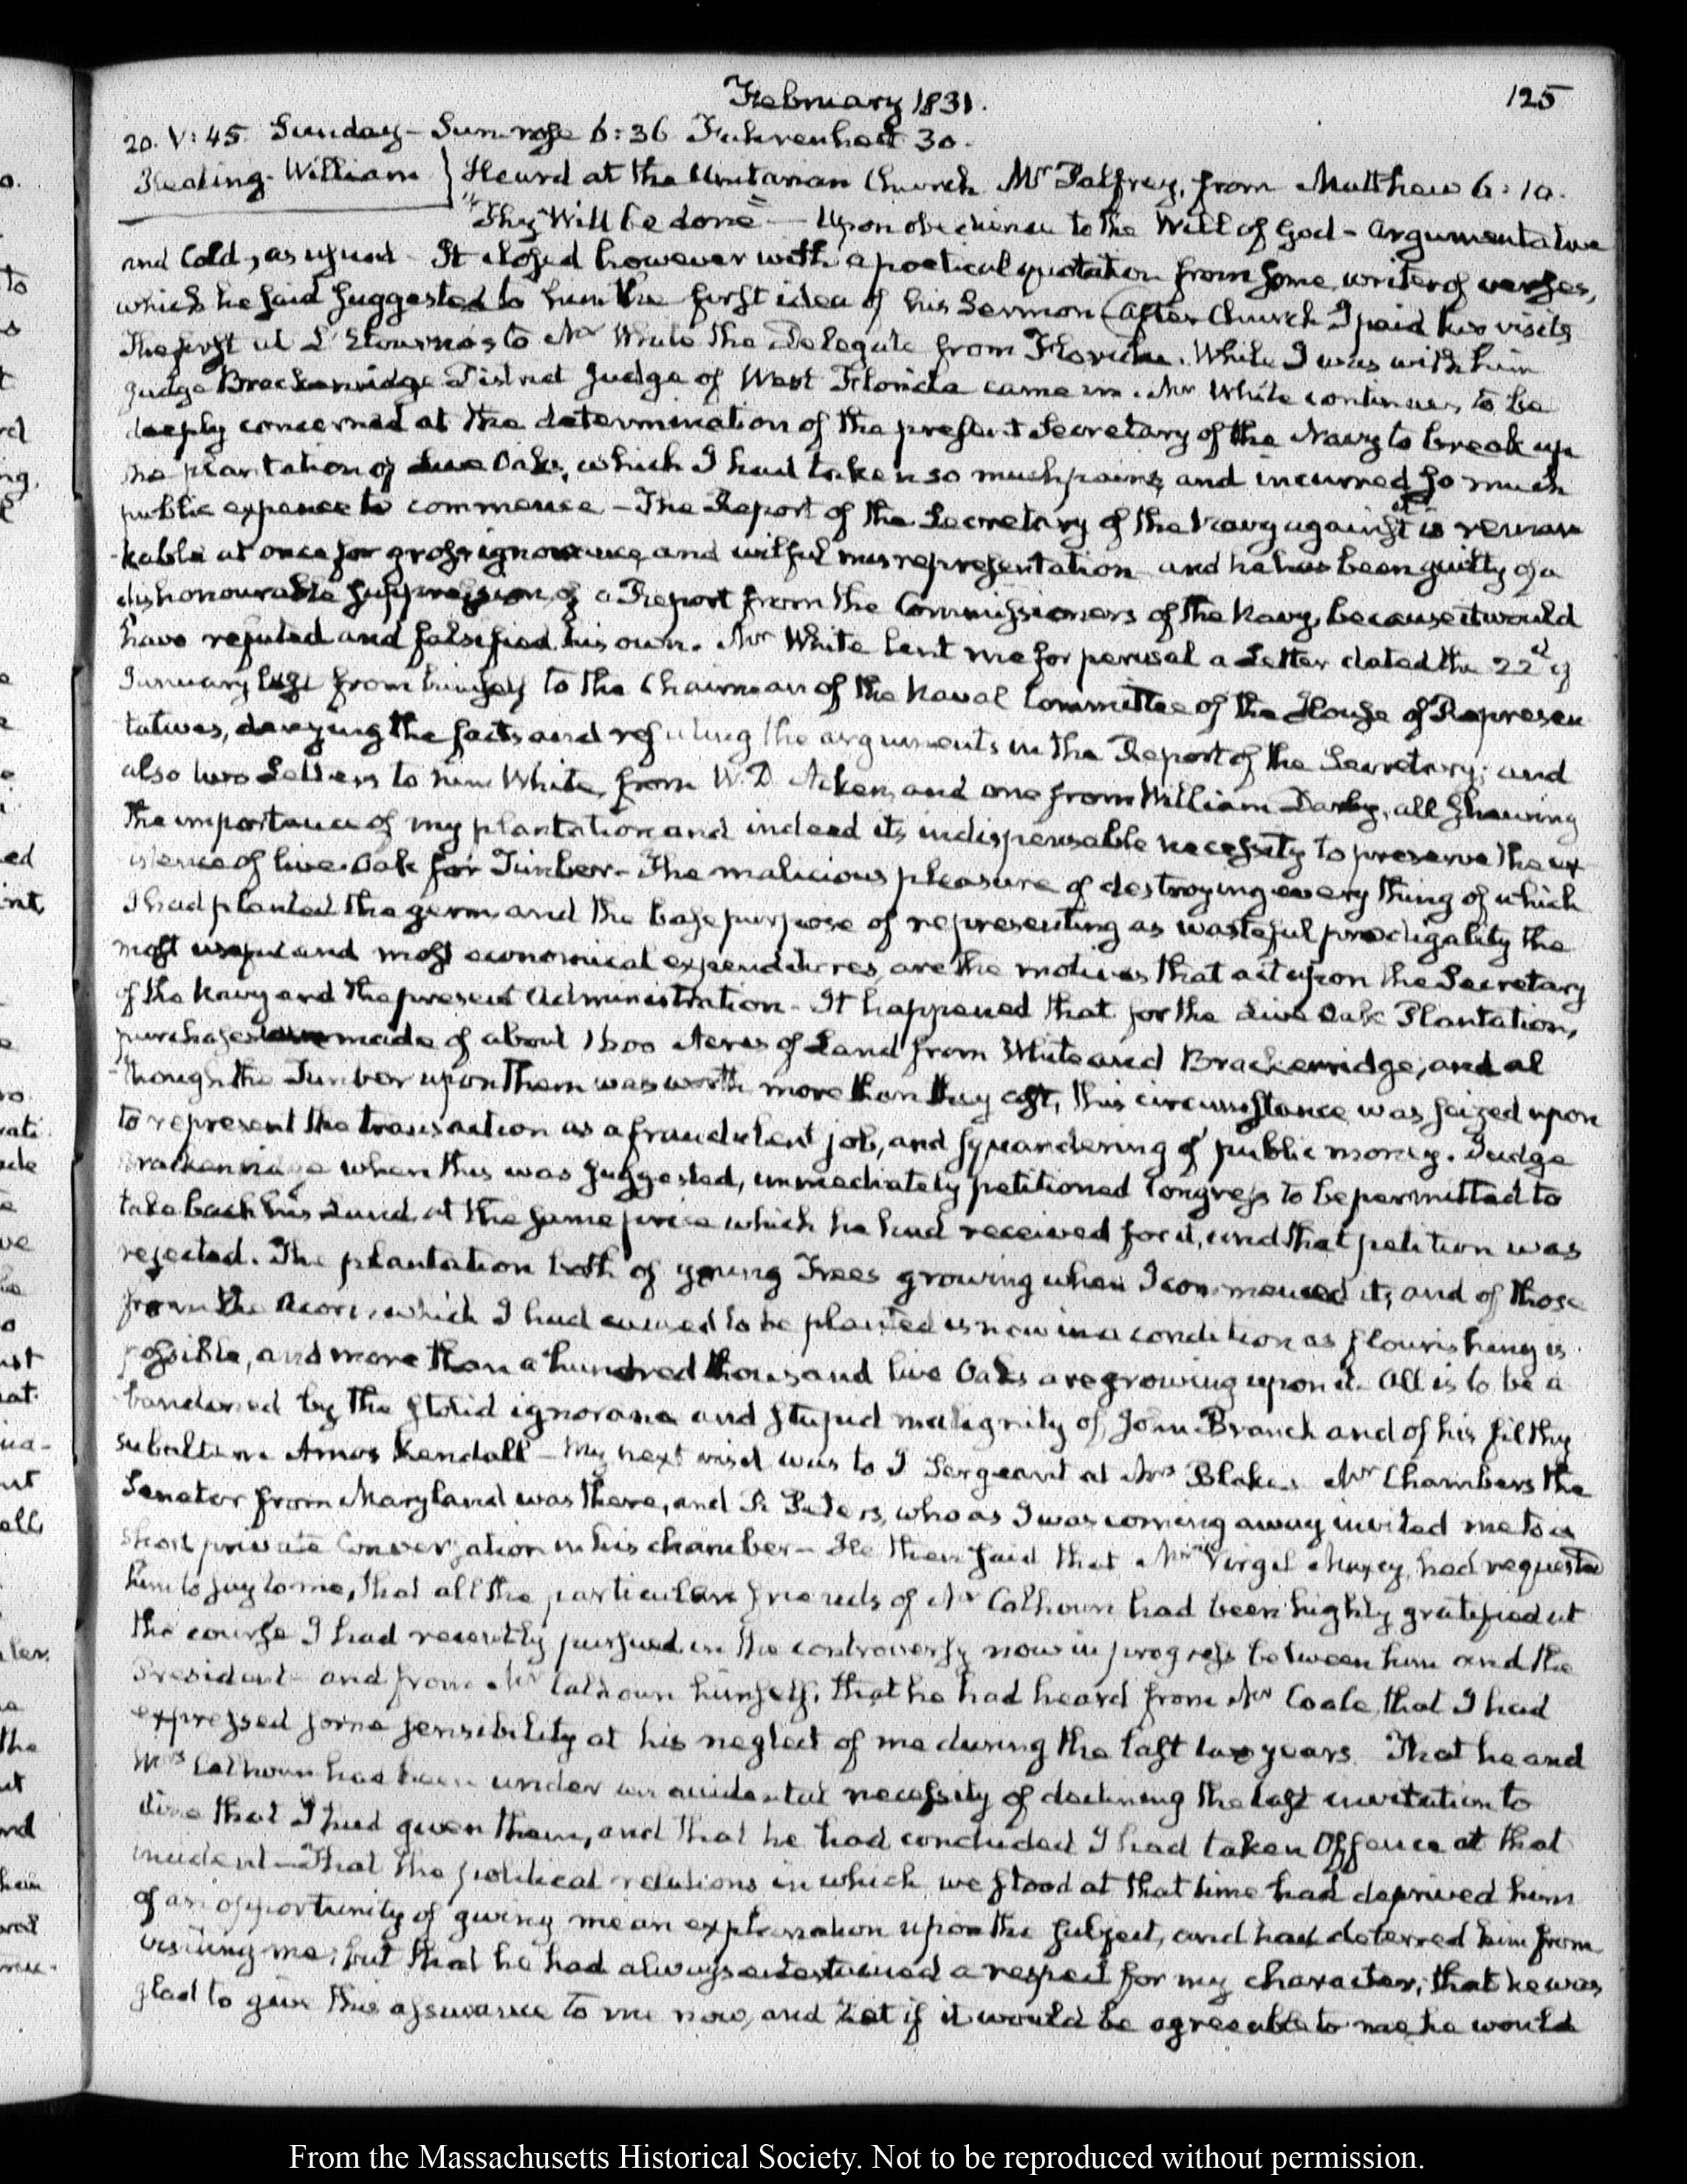 February 1831.
125
20. V:45. Sunday - Sun rose 6:36 Fahrenheit 30.
Keating. William } Heard at the Unitarian Church Mr Palfrey, from Matthew 6:10.
"Thy Will be done" — Upon obedience to the Will of God - argumentative
and Cold, as usual. It closed however with a poetical quotation from some writer of verses,
which he said suggested to him the first idea of his Sermon. After Church I paid two visits
The first at to Mr White the Delegate from Florida. While I was with him
Judge Brackenridge District Judge of West Florida came in. Mr White continues to be
deeply concerned at the determination of the present Secretary of the Navy to break up
the plantation of Live Oaks, which I had taken so much pains, and incurred so much
public expence to commence - The Report of the Secretary of the Navy against it is remar-
kable at once for gross ignorance, and wilful misrepresentation and he has been guilty of a
dishonourable suppression of a Report from the Commissioners of the Navy, because it would
have refuted and falsified his own. Mr White lent me for perusal a Letter dated the 22d of
January last from himself to the Chairman of the Naval Committee of the House of Represen
tatives, denying the facts and refuting the arguments in the Report of the Secretary; and
also two Letters to him White, from W. D. Acken, and one from William Darby, all shewing
the importance of my plantation and indeed its indispensable necessity to preserve the ex
istence of live-Oak for Timber - The malicious pleasure of destroying every thing of which
I had planted the germ, and the base purpose of representing as wasteful prodigality the
most useful and most economical expenditures, are the motives that act upon the Secretary
of the Navy and the present Administration - It happened that for the Live Oak Plantation,
purchases were made of about 1600 Acres of Land from White and Brackenridge; and al
though the Timber upon them was worth more than they cost, this circumstance was seized upon
to represent the transaction as a fraudulent job, and squandering of public money. Judge
Brackenridge when this was suggested, immediately petitioned Congress to be permitted to
take back his Land at the same price which he had received for it, and that petition was
rejected. The plantation both of young Trees growing when I commenced it, and of those
from the Acorn, which I had caused to be planted is now in a condition as flourishing as
possible, and more than a hundred thousand live Oaks are growing upon it. All is to be a
bandoned by the stolid ignorance and stupid malignity of John Branch and of his filthy
subaltern Amos Kendall - My next visit was to J Sergeant at Mrs Blake's. Mr Chambers the
Senator from Maryland was there, and R Peters, who as I was coming away invited me to a
short private Conversation in his chamber - He then said that Mr Virgil Maxcy, had requested
him to say to me, that all the particular friends of Mr Calhoun had been highly gratified at
the course I had recently pursued in the controversy now in progress between him and the
President - and from Mr Calhoun himself, that he had heard from Mr Coale, that I had
expressed some sensibility at his neglect of me during the last two years. That he and
Mrs Calhoun had been under an accidental necessity of declining the last invitation to
dine that I had given them, and that he had concluded I had taken Offence at that
incident - That the political relations in which we stood at that time had deprived him
of an opportunity of giving me an explanation upon the subject, and had deterred him from
visiting me; but that he had always entertained a respect for my character; that he was
glad to give this assurance to me now, and that if it would be agreeable to me he would
From the Massachusetts Historical Society. Not to be reproduced without permission.